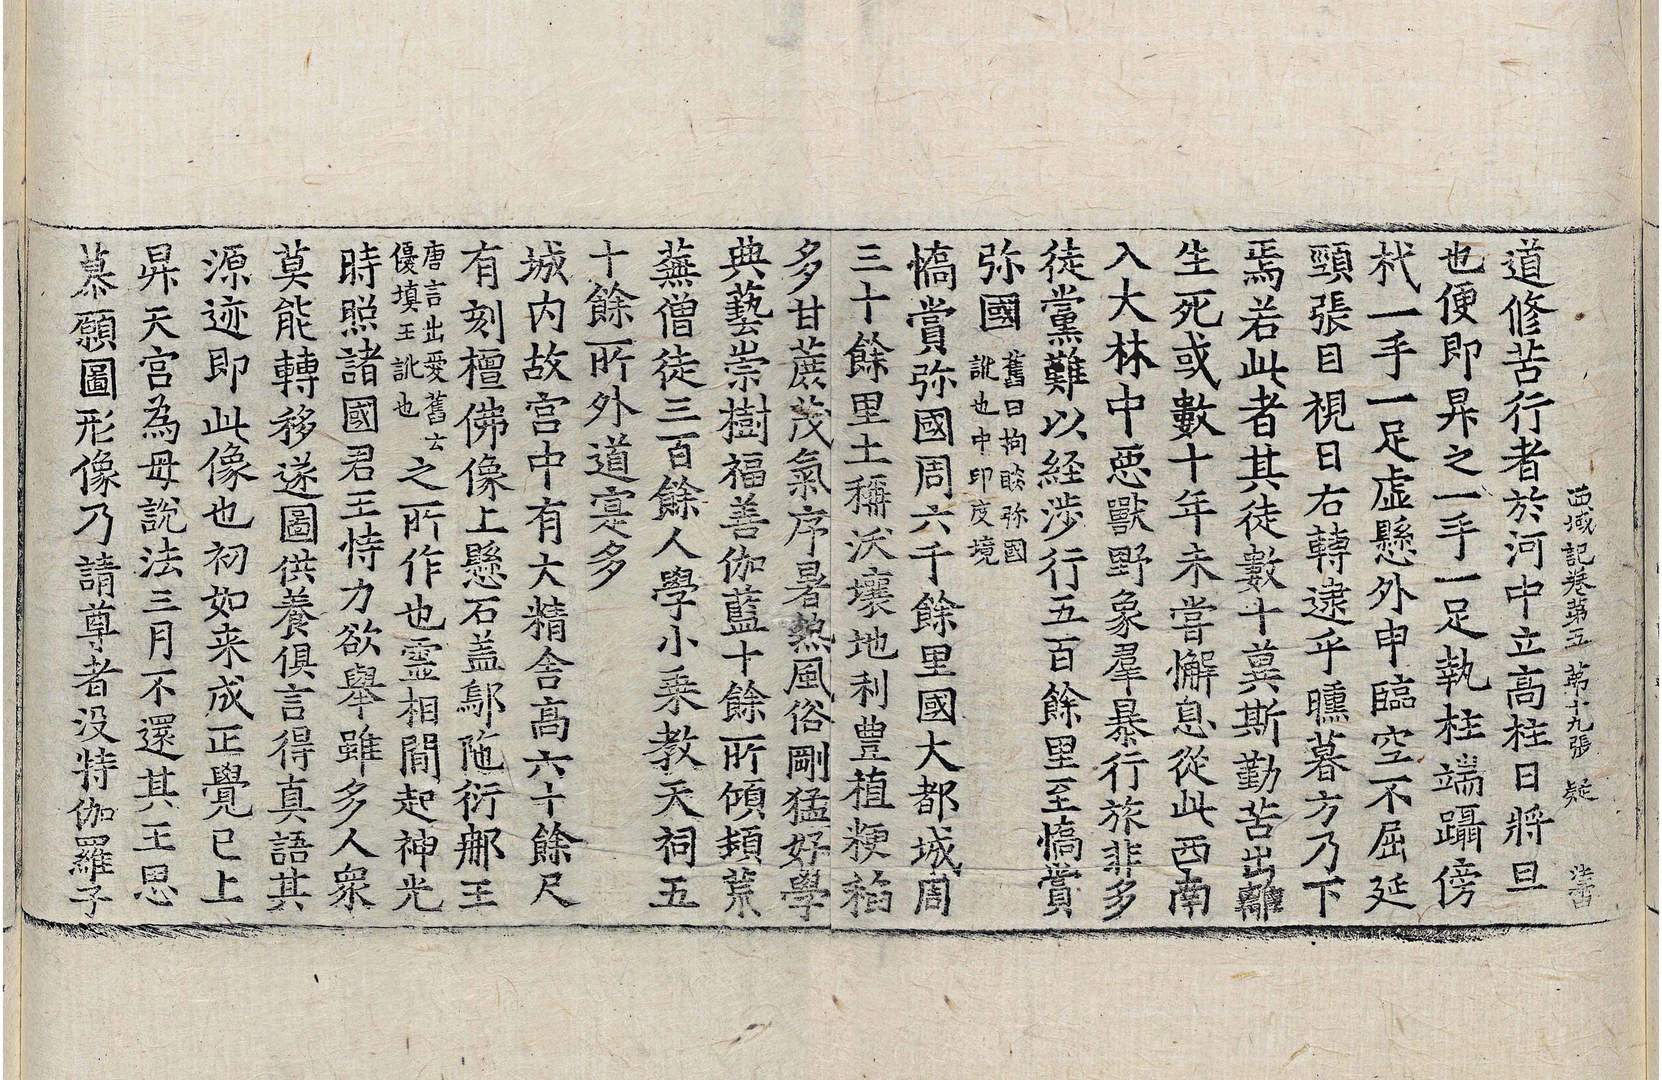 西域記卷第五 第十九張 疑 法宙
道修苦行者於河中立高柱日將旦
也便即昇之一手一足執柱端躡傍
杙一手一足虛懸外申臨空不屈延
頸張目視日右轉逮乎曛暮方乃下
焉若此者其徒數十冀斯勤苦出離
生死或數十年未嘗懈息從此西南
入大林中惡獸野象羣暴行旅非多
徒黨難以經涉行五百餘里至憍賞
弥國舊曰拘睒弥國
訛也中印度境
憍賞弥國周六千餘里國大都城周
三十餘里土稱沃壤地利豊植粳稻
多甘蔗茂氣序暑熱風俗剛猛好學
典藝崇樹福善伽藍十餘所傾頓荒
蕪僧徒三百餘人學小乘教天祠五
十餘所外道寔多
城内故宮中有大精舍高六十餘尺
有刻檀佛像上懸石盖鄔陁衍那王
唐言出愛舊云
優填王訛也之所作也靈相間起神光
時照諸國君王恃力欲舉雖多人衆
莫能轉移遂圖供養俱言得真語其
源迹即此像也初如来成正覺已上
昇天宮為母說法三月不還其王思
慕願圖形像乃請尊者没特伽羅子